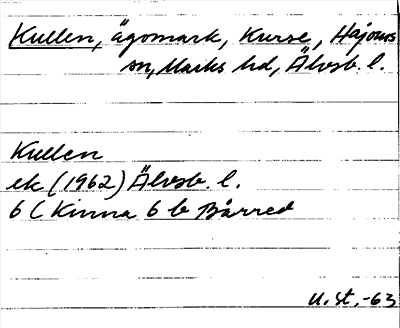 Kullen, ägomark, Kurse, Hajoms
sn, Marks hd, Älvsb. l.
Kullen
ek (1962) Älvsb. l.
6 C Kinna 6 b Bårred
U. St. -63